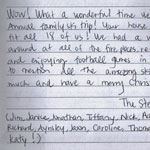 Wow! What a wonderful time we
Annual family ski trip! Your house
fit all 18 of us! We had a w
around at all of the fire places, re
and enjoying football games in
to mention all the amazing ski
much and have a merry Chris
The Ste
(Jim, Janice, Jonathan, Tiffany, Nick, As
Richard, Aynsley, Jason, Caroline, Thoma
Katy!)